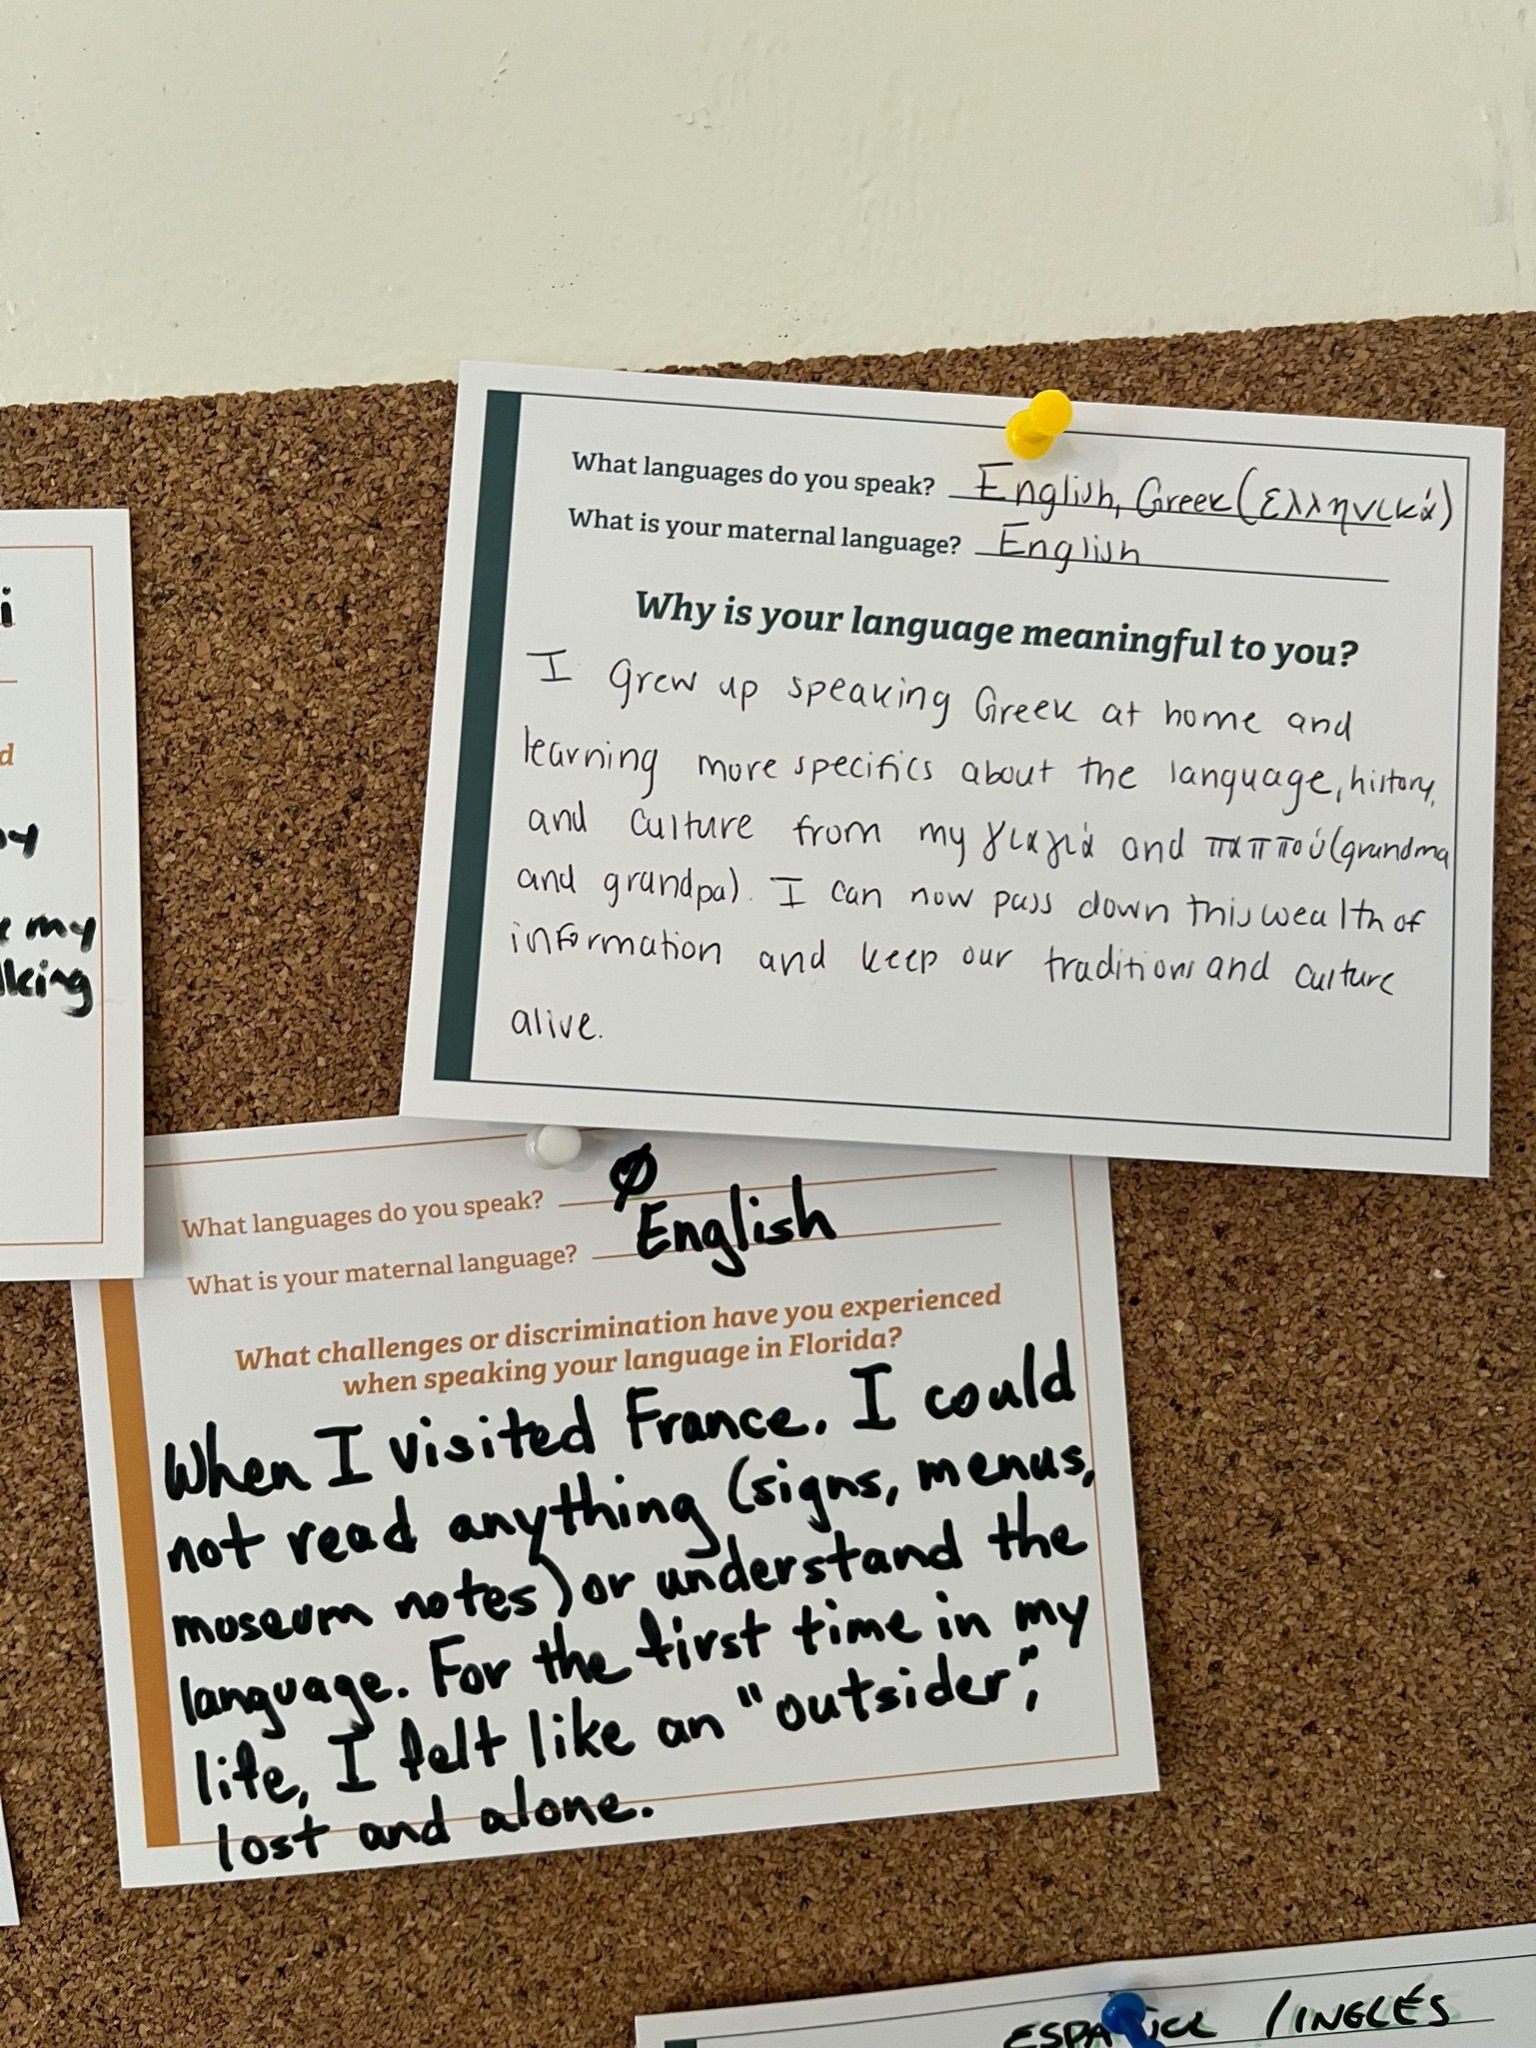 What languages do you speak? English, Greek (ελληνικά)
What is your maternal language? English
Why is your language meaningful to you?
I grew up speaking Greek at home and
learning more specifics about the language, history,
and culture from my γιαγιά and παππού (grandma
and grandpa). I can now pass down this wealth of
information and keep our traditions and culture
alive.
i
d
my
lking
What languages do you speak? Ø
What is your maternal language? English
What challenges or discrimination have you experienced
when speaking your language in Florida?
When I visited France. I could
not read anything (signs, menus,
museum notes) or understand the
language. For the first time in my
life, I felt like an "outsider",
lost and alone.
/INGLÉS